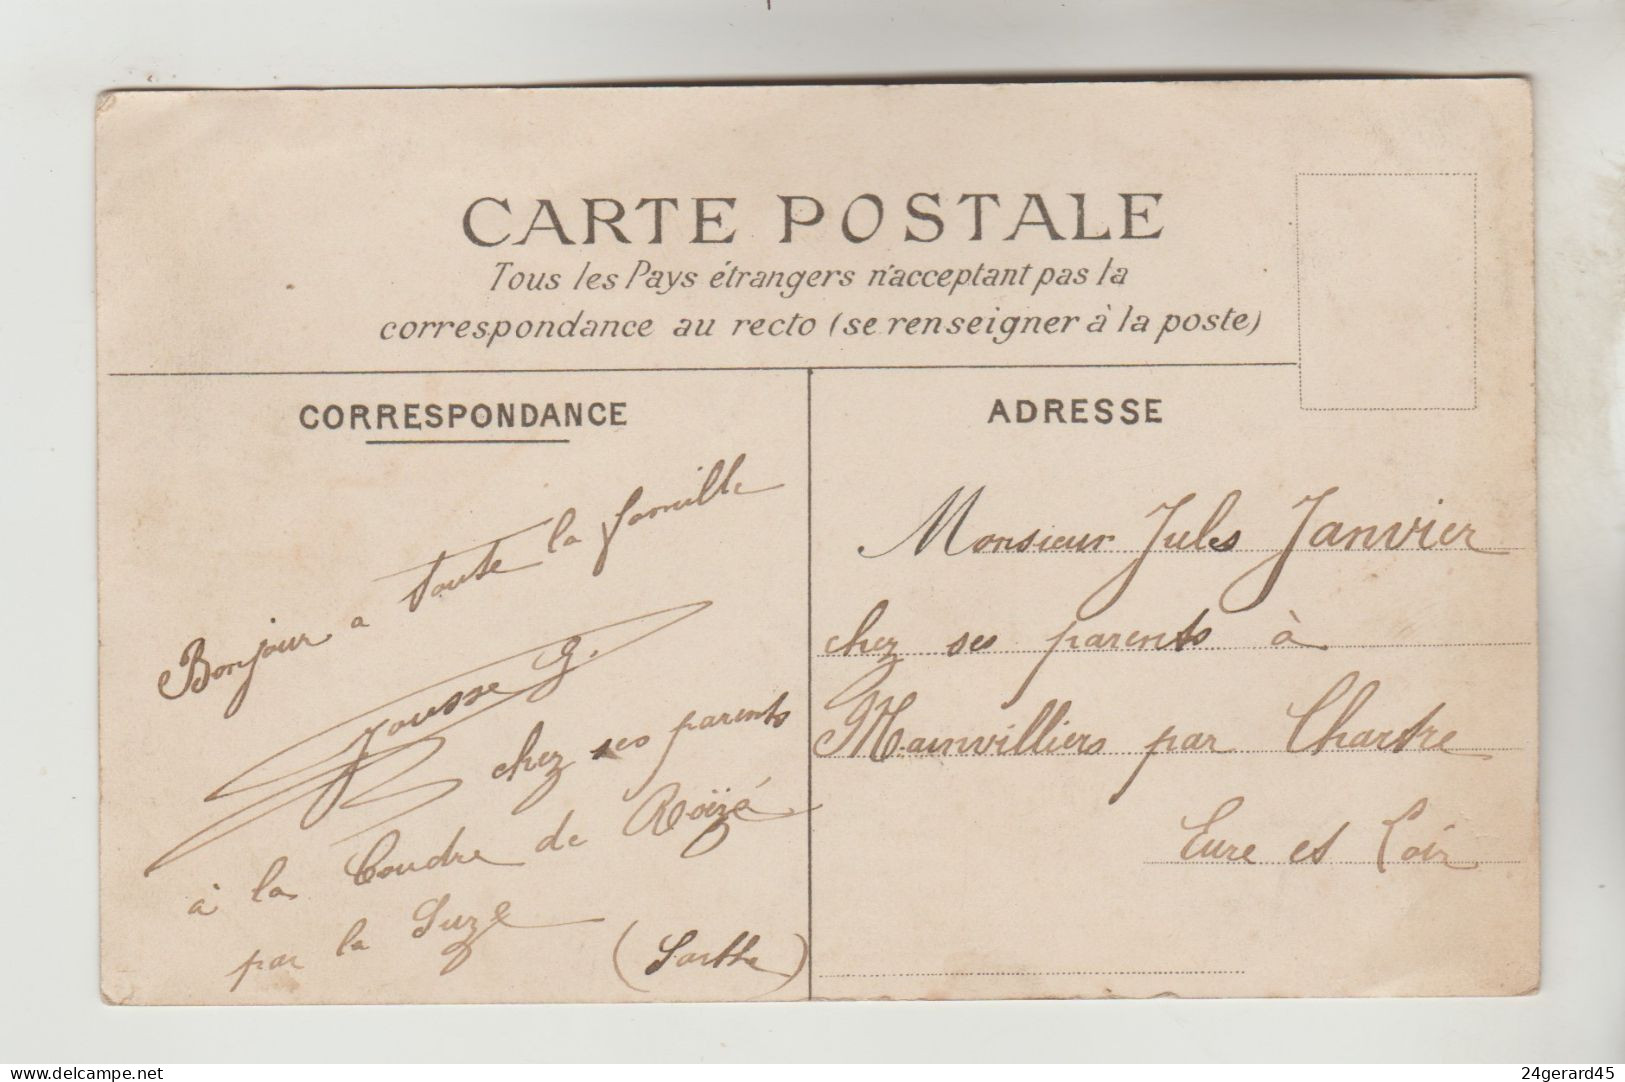 CARTE POSTALE
Tous les Pays étrangers n'acceptant pas la
correspondance au recto (se renseigner à la poste)
CORRESPONDANCE
Bonjour a toute la famille
Jousse G.
chez ses parents
à la Coudre de Roïzé
par la Suze
(Sarthe)
ADRESSE
Monsieur Jules Janvier
chez ses parents à
Mainvilliers par Chartre
Eure et Loir
24gerard45
www.delcampe.net